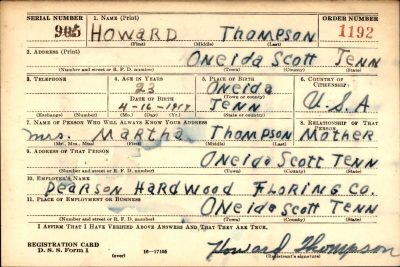 SERIAL NUMBER 1. NAME (Print) ORDER NUMBER
905 HOWARD THOMPSON 1192
(First) (Middle) (Last)
2. ADDRESS (Print)
ONEIDA SCOTT TENN
(Number and street or R. F. D. number) (Town) (County) (State)
3. TELEPHONE 4. AGE IN YEARS 5. PLACE OF BIRTH 6. COUNTRY OF CITIZENSHIP
23 ONEIDA
DATE OF BIRTH (Town or county)
4-16-1917 TENN U.S.A
(Exchange) (Number) (Mo.) (Day) (Yr.) (State or country)
7. NAME OF PERSON WHO WILL ALWAYS KNOW YOUR ADDRESS 8. RELATIONSHIP OF THAT PERSON
Mrs. MARTHA THOMPSON MOTHER
(Mr., Mrs., Miss) (First) (Middle) (Last)
9. ADDRESS OF THAT PERSON
ONEIDA SCOTT TENN
(Number and street or R. F. D. number) (Town) (County) (State)
10. EMPLOYER'S NAME
PEARSON HARDWOOD FLORING CO.
11. PLACE OF EMPLOYMENT OR BUSINESS
ONEIDA SCOTT TENN
(Number and street or R. F. D. number) (Town) (County) (State)
I AFFIRM THAT I HAVE VERIFIED ABOVE ANSWERS AND THAT THEY ARE TRUE.
REGISTRATION CARD
D. S. S. Form 1 (over) 16-17105 Howard Thompson
(Registrant's signature)